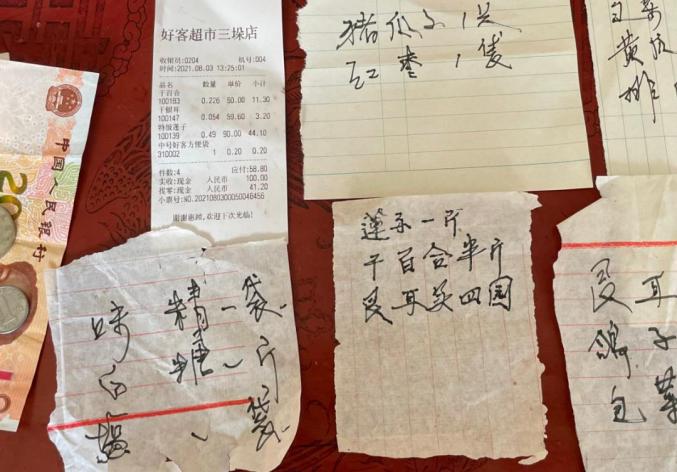 中国人民银行
20
好客超市三垛店
收银员:0204 机号:004
时间:2021.08.03 13:25:01
品名 数量 单价 小计
干百合
100183 0.226 50.00 11.30
干银耳
100147 0.054 59.60 3.20
特级莲子
100139 0.49 90.00 44.10
中号好客方便袋
310002 1 0.20 0.20
件数:4 应付:58.80
实收:现金 人民币 100.00
找零:现金 人民币 41.20
小票号:NO.2021080300050046456
谢谢惠顾,欢迎下次光临!
红枣
莲子一斤
干百合半斤
艮耳买四园
味精一袋
白糖一斤
袋
艮耳
鸽子
包菜
黄
排